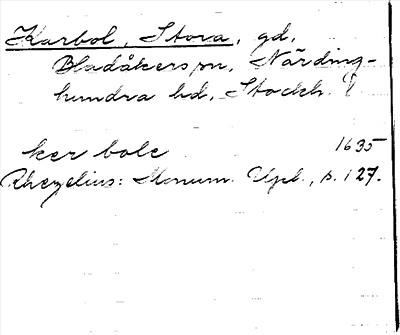 Karbol, Stora, gd,
Bladåkers sn, Närding-
hundra hd, Stockh.
ker bole 1635
Rhezelius: Monum. Upl., s. 127.